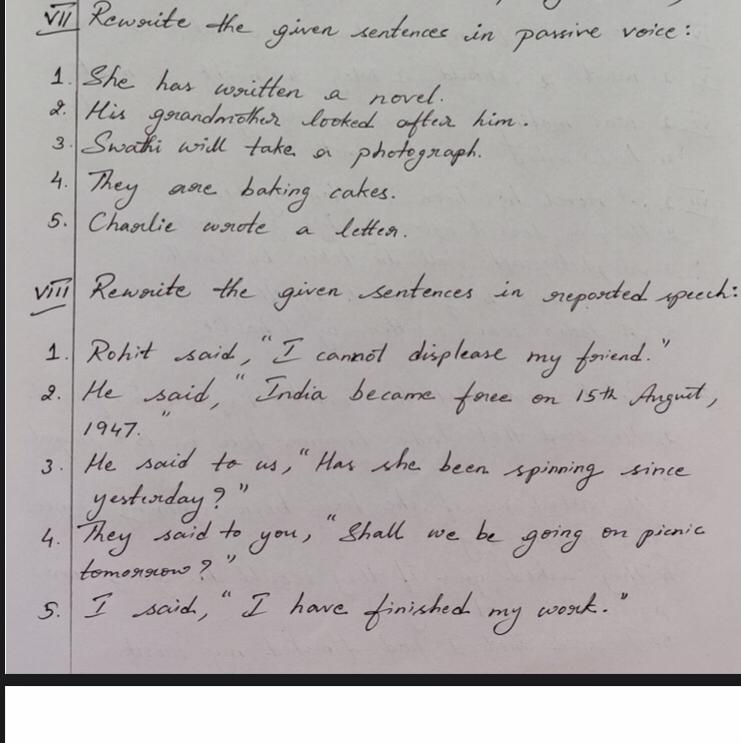 VII Rewrite the given sentences in passive voice:
1. She has written a novel.
2. His grandmother looked after him.
3. Swathi will take a photograph.
4. They are baking cakes.
5. Charlie wrote a letter.
VIII Rewrite the given sentences in reported speech:
1. Rohit said, "I cannot displease my friend."
2. He said, "India became free on 15th August,
1947."
3. He said to us, "Has she been spinning since
yesterday?"
4. They said to you, "Shall we be going on picnic
tomorrow?"
5. I said, "I have finished my work."